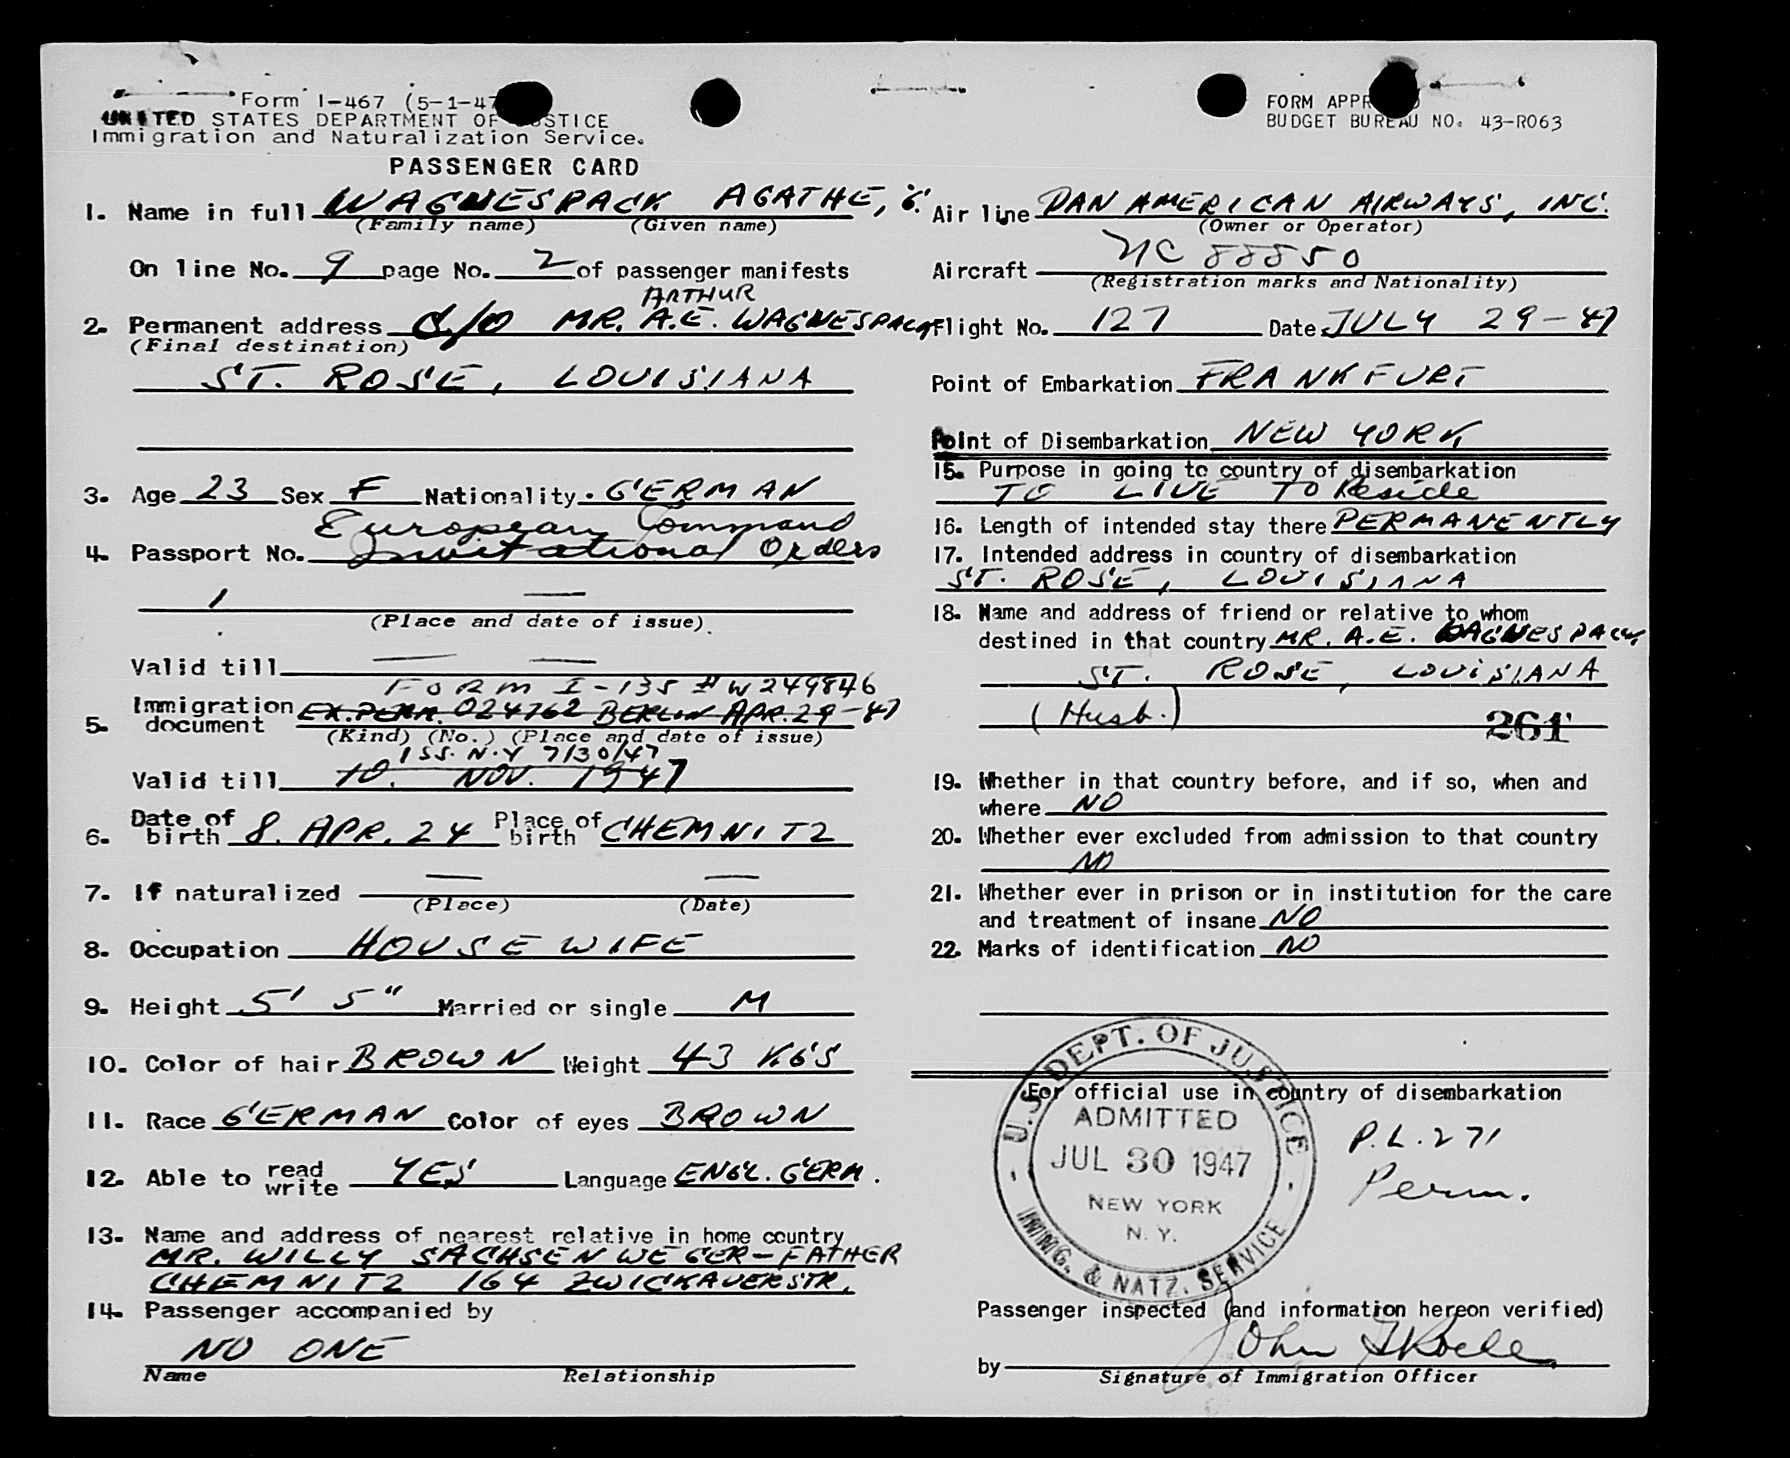 Form I-467 (5-1-47
UNITED STATES DEPARTMENT OF JUSTICE
Immigration and Naturalization Service.
PASSENGER CARD
FORM APPROVED
BUDGET BUREAU NO. 43-R063
1. Name in full WAGNESPACK AGATHE, G.
(Family name) (Given name)
On line No. 9 page No. 2 of passenger manifests
ARTHUR
2. Permanent address c/o MR. A.E. WAGNESPACK
(Final destination)
ST. ROSE, LOUISIANA
3. Age 23 Sex F Nationality GERMAN
European Command
4. Passport No. Invitational Orders
(Place and date of issue)
Valid till
FORM I-135 # W249846
5. Immigration document EX.PERM. 024762 BERLIN APR. 29-47
(Kind) (No.) (Place and date of issue)
ISS. N.Y 7/30/47
Valid till 10. NOV. 1947
6. Date of birth 8. APR. 24 Place of birth CHEMNITZ
7. If naturalized
(Place) (Date)
8. Occupation HOUSEWIFE
9. Height 5' 5" Married or single M
10. Color of hair BROWN Weight 43 KGS
11. Race GERMAN Color of eyes BROWN
12. Able to read write YES Language ENGL. GERM.
13. Name and address of nearest relative in home country
MR. WILLY SACHSENWEGER-FATHER
CHEMNITZ 164 ZWICKAUERSTR.
14. Passenger accompanied by
NO ONE
Name Relationship
Air line PAN AMERICAN AIRWAYS, INC.
(Owner or Operator)
Aircraft NC 88850
(Registration marks and Nationality)
Flight No. 127 Date JULY 29-47
Point of Embarkation FRANKFURT
Point of Disembarkation NEW YORK
15. Purpose in going to country of disembarkation
TO LIVE TO Reside
16. Length of intended stay there PERMANENTLY
17. Intended address in country of disembarkation
ST. ROSE, LOUISIANA
18. Name and address of friend or relative to whom
destined in that country MR. A.E. WAGNESPACK
ST. ROSE, LOUISIANA
(Husb.) 261
19. Whether in that country before, and if so, when and
where NO
20. Whether ever excluded from admission to that country
NO
21. Whether ever in prison or in institution for the care
and treatment of insane NO
22. Marks of identification NO
For official use in country of disembarkation
U.S. DEPT. OF JUSTICE
ADMITTED
JUL 30 1947
NEW YORK
N. Y.
IMMIG. & NATZ. SERVICE
P.L. 271
Perm.
Passenger inspected (and information hereon verified)
by John
Signature of Immigration Officer